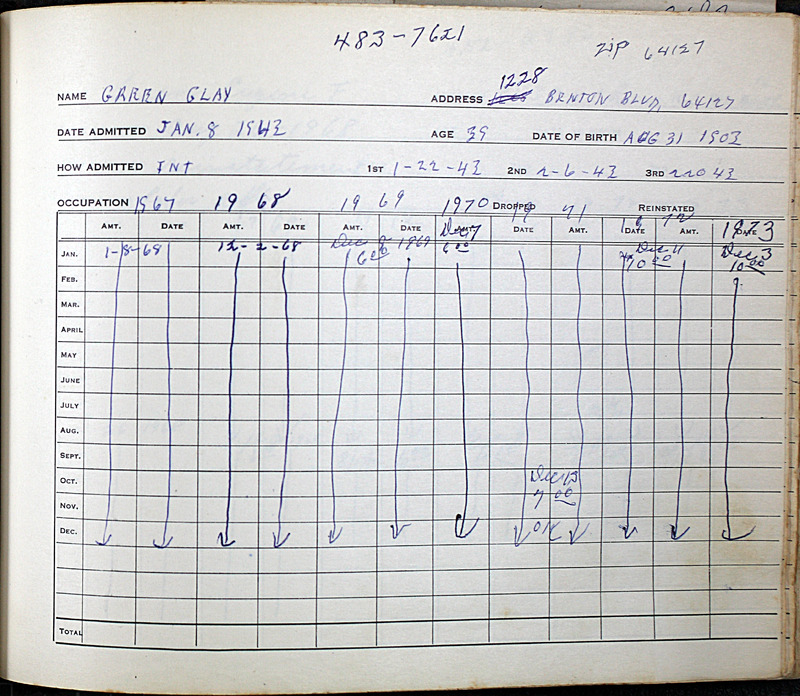 483-7621
ZIP 64127
1228
NAME GREEN CLAY ADDRESS BENTON BLVD, 64127
DATE ADMITTED JAN. 8 1943 AGE 39 DATE OF BIRTH AUG 31 1903
HOW ADMITTED INT 1ST 1-22-43 2ND 2-6-43 3RD 2 20 43
OCCUPATION 1967 19 68 19 69 1970 DROPPED 19 71 REINSTATED 19 72 1973
AMT. DATE AMT. DATE AMT. DATE AMT. DATE AMT. DATE AMT. DATE
JAN. 1-8-68 12-2-68 Dec 8 1969 Dec 7 Dec 11 Dec 3
6 00 6 00 7 00 10 00
FEB.
MAR.
APRIL
MAY
JUNE
JULY
AUG.
SEPT.
OCT. Dec 13
NOV. 7 00
DEC. OK
TOTAL